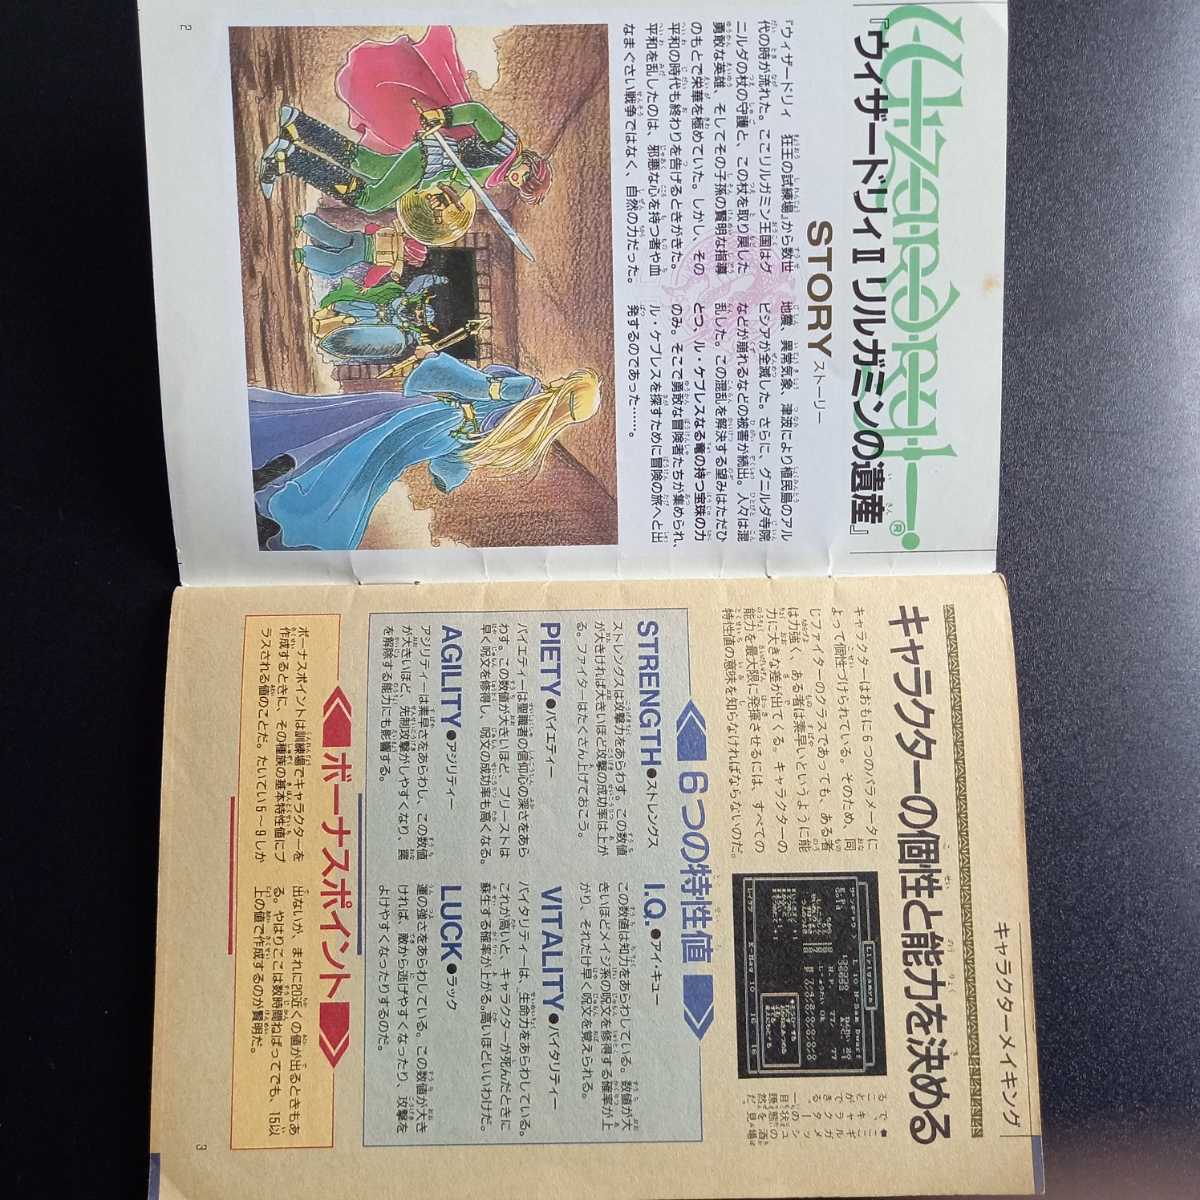 Wizardry®
『ウィザードリィⅡ リルガミンの遺産』
STORY ストーリー
『ウィザードリィ 狂王の試練場』から数世
代の時が流れた。ここリルガミン王国はゲ
ニルダの杖の守護と、この杖を取り戻した
勇敢な英雄、そしてその子孫の賢明な指導
のもとで栄華を極めていた。しかし、その
平和の時代も終わりを告げるときがきた。
平和を乱したのは、邪悪な心を持つ者や血
なまぐさい戦争ではなく、自然の力だった。
地震、異常気象、津波により植民島のアル
ビシアが全滅した。さらに、グニルダ寺院
などが崩れるなどの被害が続出。人々は混
乱した。この混乱を解決する望みはただひ
とつ、ル・ケブレスなる竜の持つ宝珠の力
のみ。そこで勇敢な冒険者たちが集められ、
ル・ケブレスを探すために冒険の旅へと出
発するのであった……。
2
キャラクターメイキング
キャラクターの個性と能力を決める
キャラクターはおもに6つのパラメータに
よって個性づけられている。そのため、同
じファイターのクラスであっても、ある者
は力強く、ある者は素早いというように能
力に大きな差が出てくる。キャラクターの
能力を最大限に発揮させるには、すべての
特性値の意味を知らなければならないのだ。
6つの特性値
STRENGTH●ストレングス
ストレングスは攻撃力をあらわす。この数値
が大きければ大きいほど攻撃の成功率は上が
る。ファイターはたくさん上げておこう。
I.Q.●アイ・キュー
この数値は知力をあらわしている。数値が大
きいほどメイジ系の呪文を修得する確率が上
がり、それだけ早く呪文を覚えられる。
PIETY●パイエティー
パイエティーは聖職者の信仰心の深さをあら
わす。この数値が大きいほど、プリーストは
早く呪文を修得し、呪文の成功率も高くなる。
VITALITY●バイタリティー
バイタリティーは、生命力をあらわしている。
これが高いと、キャラクターが死んだときに
蘇生する確率が上がる。高いほどいいわけだ。
AGILITY●アジリティー
アジリティーは素早さをあらわし、この数値
が大きいほど、先制攻撃がしやすくなり、罠
を解除する能力にも影響する。
LUCK●ラック
運の強さをあらわしている。この数値が大き
ければ、敵から逃げやすくなったり、攻撃を
よけやすくなったりするのだ。
ボーナスポイント
ボーナスポイントは訓練場でキャラクターを
作成するときに、その種族の基本特性値にプ
ラスされる値のことだ。たいてい5～9しか
出ないが、まれに20近くの値が出るときもあ
る。やはりここは数時間ねばってでも、15以
上の値で作成するのが賢明だ。
3